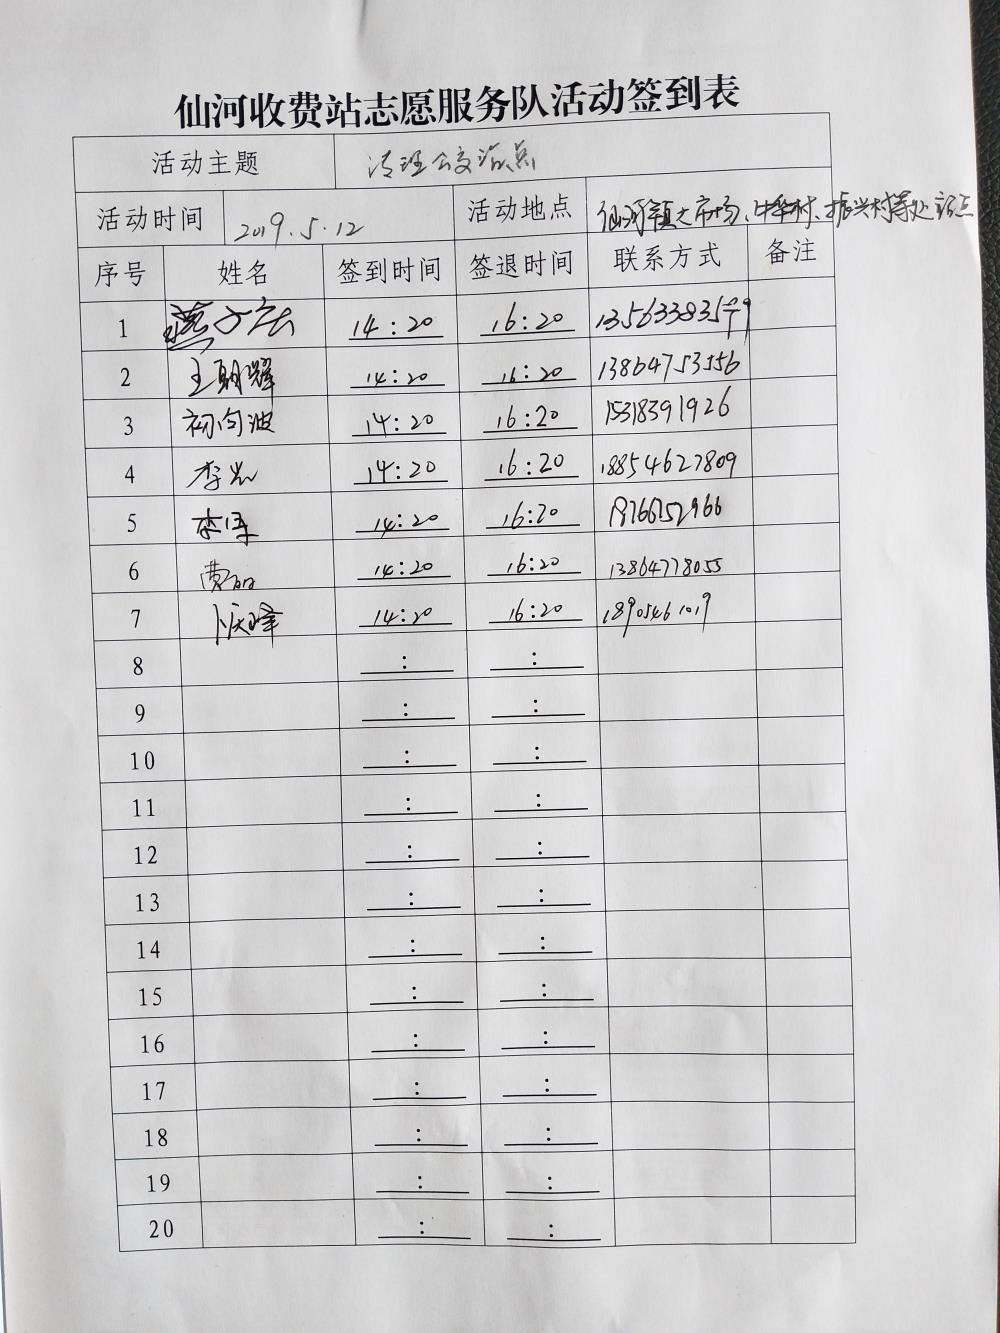 仙河收费站志愿服务队活动签到表
活动主题 清理公交站点
活动时间 2019.5.12 活动地点 仙河镇大市场、中华村、振兴村等处站点
序号 姓名 签到时间 签退时间 联系方式 备注
1 14:20 16:20
2 王朝辉 14:20 16:20 13864753556
3 初向波 14:20 16:20 15318391926
4 14:20 16:20 18854627809
5 14:20 16:20
6 14:20 16:20 13864778055
7 14:20 16:20
8 : :
9 : :
10 : :
11 : :
12 : :
13 : :
14 : :
15 : :
16 : :
17 : :
18 : :
19 : :
20 : :